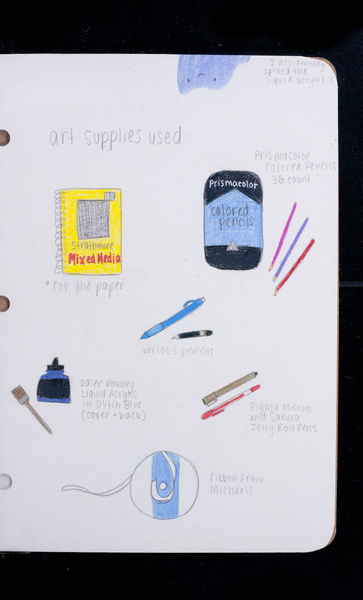 I accidentally
spilled the
liquid acrylic :(
art supplies used
Prismacolor
Colored Pencils
36 count
Prismacolor
colored
pencils
Strathmore
Mixed Media
*for the paper
various pencils
Daler Rowney
Liquid Acrylic
in Dutch Blue
(cover + back)
Pigma Micron
and Sakura
Jelly Roll Pens
ribbon from
Michaels